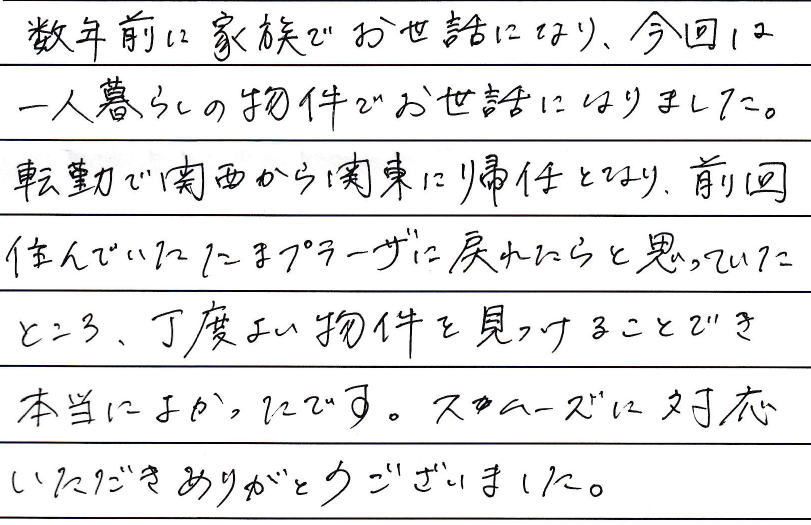 数年前に家族でお世話になり、今回は
一人暮らしの物件でお世話になりました。
転勤で関西から関東に帰任となり、前回
住んでいたたまプラーザに戻れたらと思っていた
ところ、丁度よい物件を見つけることでき
本当によかったです。スムーズに対応
いただきありがとうございました。